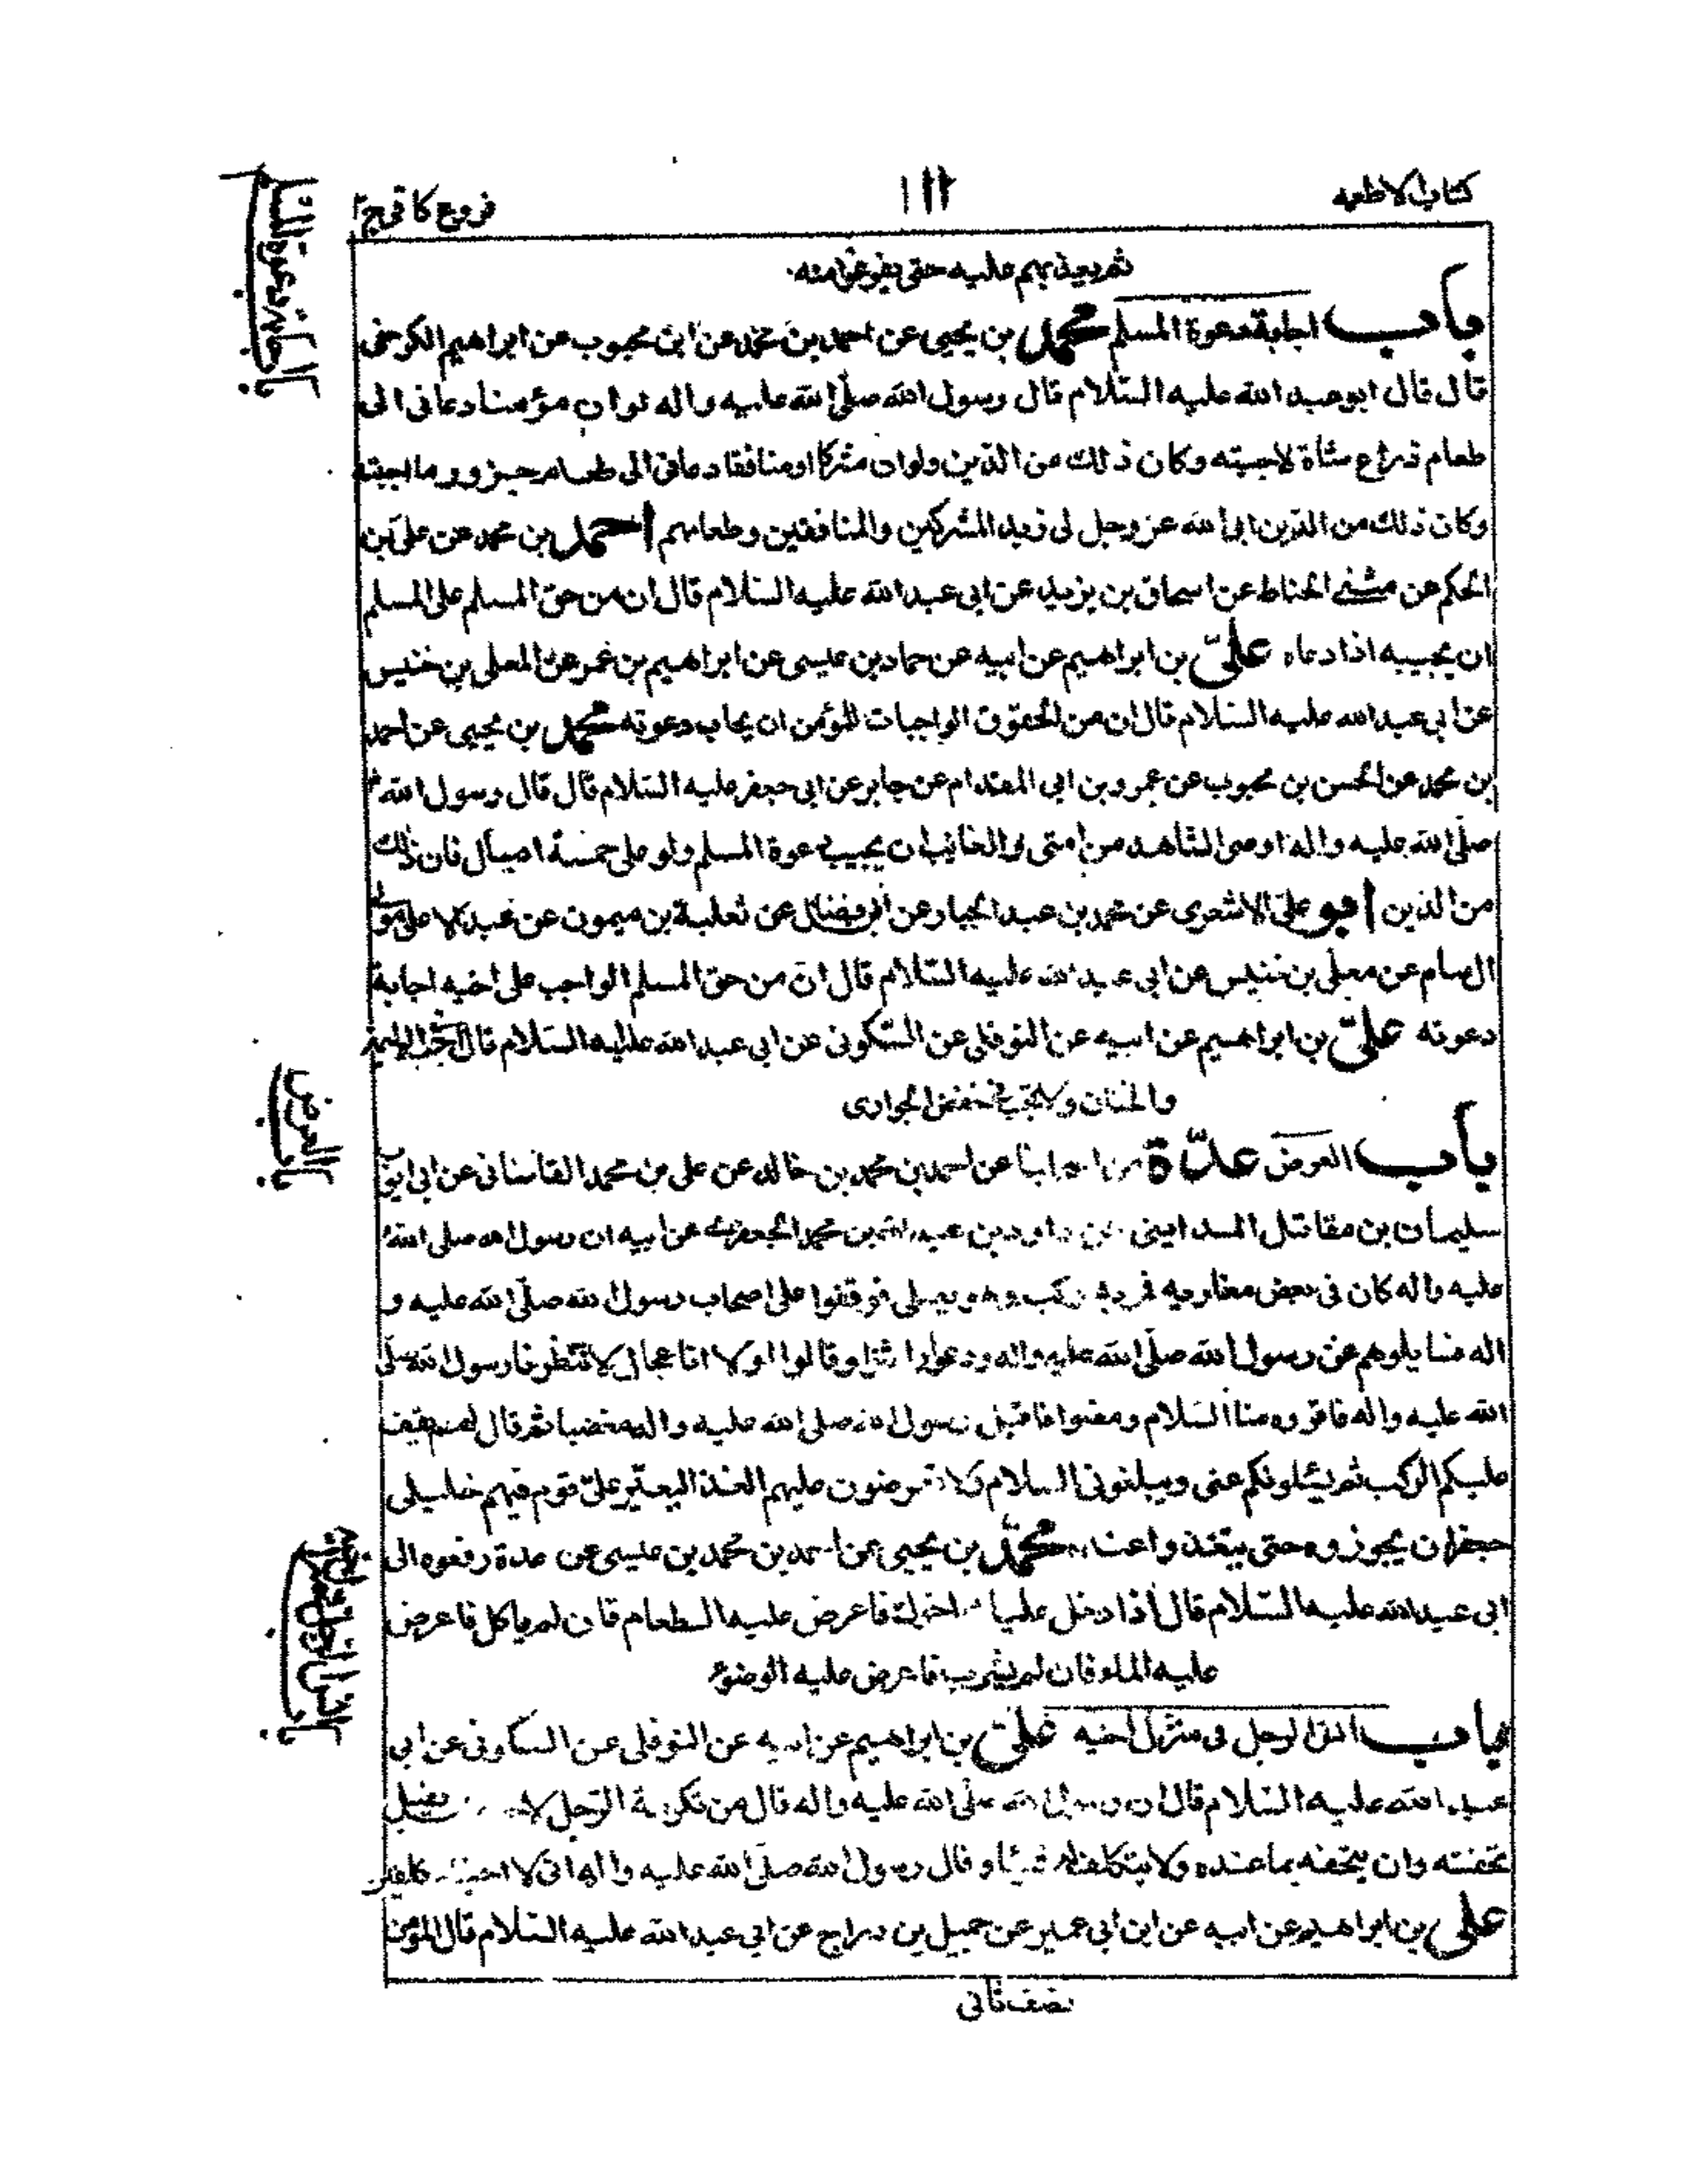 كتاب الاطعمه
١١٢
فروع كافى ج٢
ثم يعيد بهم عليه حتى يفرغوا منه
باب اجابة دعوة المسلم محمد بن يحيى عن احمد بن محمد عن ابن محبوب عن ابراهيم الكرخى
قال قال ابو عبد الله عليه السّلام قال رسول الله صلّى الله عليه واله لو ان مؤمنا دعانى الى
طعام ذراع شاة لاجبته وكان ذلك من الدّين ولو ان مشركا او منافقا دعانى الى طعام جزور ما اجبته
وكان ذلك من الدّين ابى الله عز وجل لى زبد المشركين والمنافقين وطعامهم احمد بن محمد عن على بن
الحكم عن مثنى الحناط عن اسحاق بن يزيد عن ابى عبد الله عليه السّلام قال ان من حق المسلم على المسلم
ان يجيبه اذا دعاه علىّ بن ابراهيم عن ابيه عن حماد بن عيسى عن ابراهيم بن عمر عن المعلى بن خنيس
عن ابى عبد الله عليه السّلام قال ان من الحقوق الواجبات للمؤمن ان يجاب دعوته محمد بن يحيى عن احمد
بن محمد عن الحسن بن محبوب عن عمرو بن ابى المقدام عن جابر عن ابى جعفر عليه السّلام قال قال رسول الله
صلّى الله عليه واله اوصى الشاهد من امتى والغائب ان يجيب دعوة المسلم ولو على خمسة اميال فان ذلك
من الدّين ابو على الاشعرى عن محمد بن عبد الجبار عن ابن فضال عن ثعلبة بن ميمون عن عبد الاعلى مولى
ال سام عن معلى بن خنيس عن ابى عبد الله عليه السّلام قال انّ من حق المسلم الواجب على اخيه اجابة
دعوته علىّ بن ابراهيم عن ابيه عن النوفلى عن السّكونى عن ابى عبد الله عليه السّلام قال اجب الوليمة
والختان ولا تجب فى خفض الجوارى
باب العرض عدّة من اصحابنا عن احمد بن محمد بن خالد عن على بن محمد القاسانى عن ابى ايوب
سليمان بن مقاتل المداينى عن داود بن عبد الله بن محمد الجعفرى عن ابيه ان رسول الله صلى الله
عليه واله كان فى بعض مغازيه فمر به ركب وهو يصلى فوقفوا على اصحاب رسول الله صلّى الله عليه و
اله فسايلوهم عن رسول الله صلّى الله عليه واله ودعوا واثنوا وقالوا لولا انا عجال لانتظرنا رسول الله صلّى
الله عليه واله فاقرؤه منا السّلام ومضوا فاقبل رسول الله صلى الله عليه واله مغضبا ثم قال لهم يقف
عليكم الركب ثم يسئلونكم عنى ويبلغونى السلام ولا تعرضون عليهم الغذا ليعز علىّ قوم فيهم خليلى
جعفر ان يجوزوه حتى يتغذوا عنده محمّد بن يحيى عن احمد بن محمد بن عيسى عن عدة رفعوه الى
ابى عبد الله عليه السّلام قال اذا دخل عليك اخوك فاعرض عليه الطعام فان لم ياكل فاعرض
عليه الماء فان لم يشرب فاعرض عليه الوضوء
باب انس الرجل فى منزل اخيه علىّ بن ابراهيم عن ابيه عن النوفلى عن السكونى عن ابى
عبد الله عليه السّلام قال ان رسول الله صلّى الله عليه واله قال من تكرمة الرّجل يقبل
تحفته وان يتحفه بما عنده ولا يتكلف له شيئا وقال رسول الله صلّى الله عليه واله انى لا احب
على بن ابراهيم عن ابيه عن ابن ابى عمير عن جميل بن دراج عن ابى عبد الله عليه السّلام قال المؤمن
نصف ثانى
باب اجابة دعوة المسلم
باب العرض
باب انس الرجل فى منزل اخيه